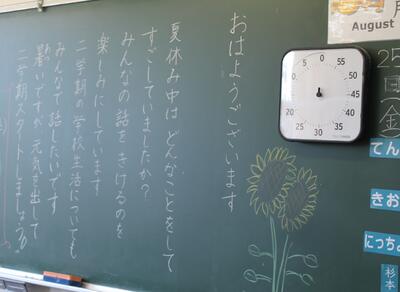 おはようございます
夏休み中は どんなことをして
すごしていましたか?
みんなの話を きけるのを
楽しみにしています
二学期の学校生活についても
みんなで話したいです
暑いですが、元気を出して
二学期スタートしましょう!
August
月
25
日
(金)
0
5
10
15
20
25
30
35
40
45
50
55
てん
きお
にっちょ
杉本